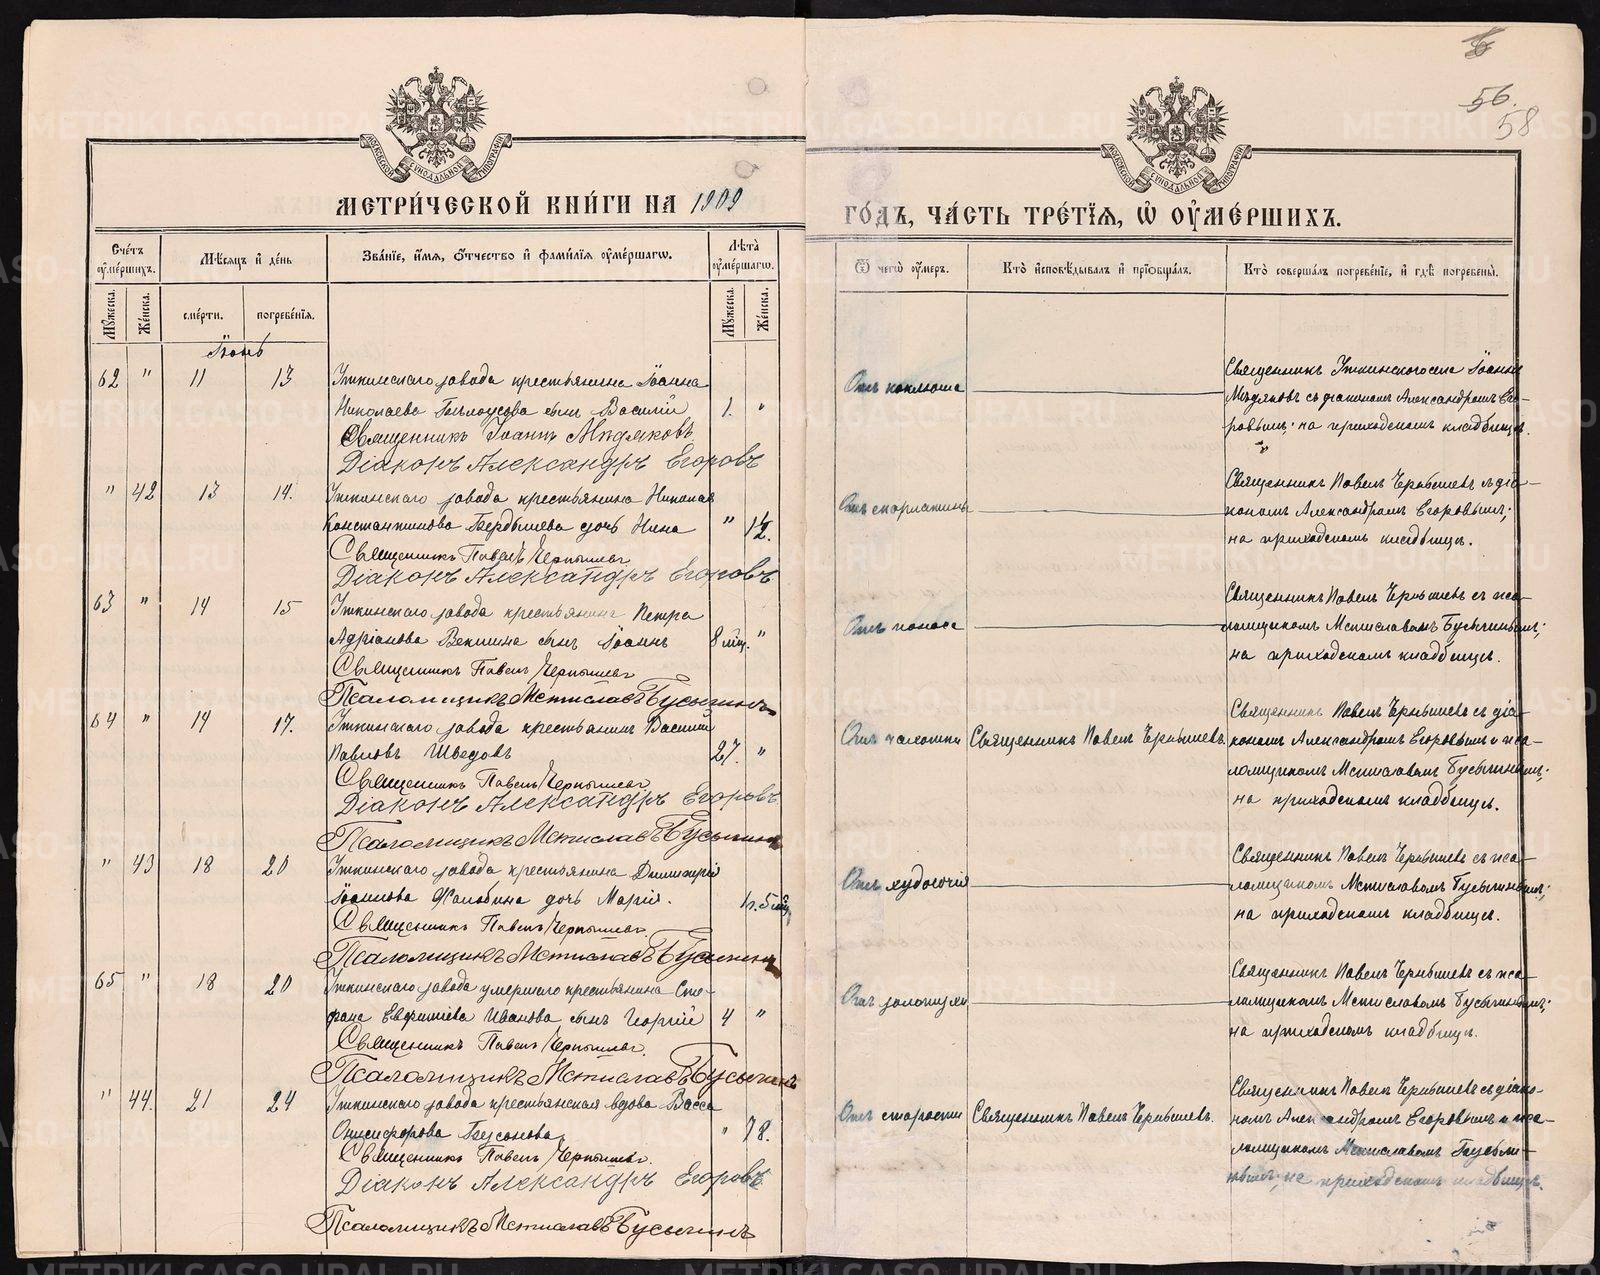 56.
58
МЕТРИ́ЧЕСКОЙ КНИ́ГИ НА 1909
ГО́ДЪ, ЧА́СТЬ ТРЕ́ТЇѦ, Ѡ҆ ОУ҆МЕ́РШИХЪ.
Сче́тъ оу҆ме́ршихъ.
Мѣ́сѧцъ и҆ де́нь
Зва́нїе, и҆́мѧ, ѻ҆́тчество и҆ фами́лїѧ оу҆ме́ршагѡ.
Лѣ́та оу҆ме́ршагѡ.
Ѿ чегѡ̀ оу҆́меръ.
Кто̀ и҆сповѣ́дывалъ и҆ прїѡбща́лъ.
Кто̀ соверша́лъ погребе́нїе, и҆ гдѣ̀ погребены̀.
Мꙋ́жеска.
Же́нска.
сме́рти.
погребе́нїѧ.
Мꙋ́жеска.
Же́нска.
Іюнь
62 " 11 13 Уткинскаго завода крестьянина Іоанна
Николаева Бѣлоусова сынъ Василій 1. "
Священникъ Іоаннъ Мидяковъ
Діаконъ Александръ Егоровъ
Отъ коклюша
Священникъ Уткинского села Іоаннъ
Мѣдяковъ съ діакономъ Александромъ Его-
ровымъ; на приходскомъ кладбищѣ.
" 42 13 14. Уткинскаго завода крестьянина Николая
Константинова Бердышева дочь Нина " 1½.
Священникъ Павелъ Чернышевъ
Діаконъ Александръ Егоровъ
Отъ скарлатины
Священникъ Павелъ Чернышевъ съ діа-
кономъ Александромъ Егоровымъ;
на приходскомъ кладбищѣ.
63 " 14 15 Уткинскаго завода крестьянина Петра
Адріанова Векшина сынъ Іоаннъ 8 мѣц. "
Священникъ Павелъ Чернышевъ
Псаломщикъ Мстиславъ Бусыгинъ
Отъ поноса
Священникъ Павелъ Чернышевъ съ пса-
ломщикомъ Мстиславомъ Бусыгинымъ;
на приходскомъ кладбищѣ.
64 " 14 17. Уткинскаго завода крестьянинъ Василій
Павловъ Шведовъ 27. "
Священникъ Павелъ Чернышевъ
Діаконъ Александръ Егоровъ
Псаломщикъ Мстиславъ Бусыгинъ
Отъ чахотки
Священникъ Павелъ Чернышевъ.
Священникъ Павелъ Чернышевъ съ діа-
кономъ Александромъ Егоровымъ и пса-
ломщикомъ Мстиславомъ Бусыгинымъ;
на приходскомъ кладбищѣ.
" 43 18 20 Уткинскаго завода крестьянина Димитрія
Іоаннова Жалобина дочь Марія. 5 мц.
Священникъ Павелъ Чернышевъ.
Псаломщикъ Мстиславъ Бусыгинъ
Отъ худосочія
Священникъ Павелъ Чернышевъ съ пса-
ломщикомъ Мстиславомъ Бусыгинымъ;
на приходскомъ кладбищѣ.
65 " 18 20 Уткинскаго завода умершаго крестьянина Сте-
фана Евфиміева Иванова сынъ Георгій 4 "
Священникъ Павелъ Чернышевъ.
Псаломщикъ Мстиславъ Бусыгинъ
Отъ золотухи
Священникъ Павелъ Чернышевъ съ пса-
ломщикомъ Мстиславомъ Бусыгинымъ;
на приходскомъ кладбищѣ.
" 44. 21 24 Уткинскаго завода крестьянская вдова Васса
Онисифорова Бусонова " 72.
Священникъ Павелъ Чернышевъ.
Діаконъ Александръ Егоровъ
Псаломщикъ Мстиславъ Бусыгинъ
Отъ старости
Священникъ Павелъ Чернышевъ.
Священникъ Павелъ Чернышевъ съ діако-
номъ Александромъ Егоровымъ и пса-
ломщикомъ Мстиславомъ Бусыги-
нымъ; на приходскомъ кладбищѣ.